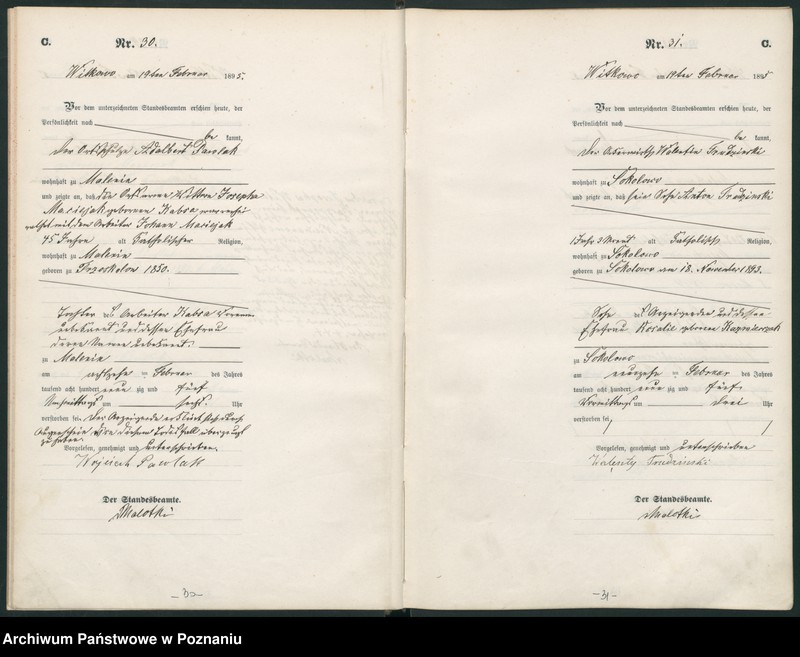 C.
Nr. 30.
Witkowo am 19ten Februar 1895.
Vor dem unterzeichneten Standesbeamten erschien heute, der
Persönlichkeit nach
be kannt,
der Ortsschulze Adalbert Pawlak
wohnhaft zu Malenin
und zeigte an, daß die Ortsarme Wittwe Josepha
Maciejak geborene Kabsa
mit dem Arbeiter Johann Maciejak
45 Jahre alt katholischer Religion,
wohnhaft zu Malenin
geboren zu 1850.
Tochter des Arbeiter Kabsa
unbekannt und dessen Ehefrau
deren Namen unbekannt.
zu Malenin
am achtzehn ten Februar des Jahres
tausend acht hundert neun zig und fünf
Nachmittags um sechs Uhr
verstorben sei. Der Anzeigende erklärt
Augenschein von diesem Todesfall überzeugt
zu haben.
Vorgelesen, genehmigt und unterschrieben.
Wojciech Pawlak
Der Standesbeamte.
Malotki
– 30 –
Nr. 31.
C.
Witkowo am 19ten Februar 1895
Vor dem unterzeichneten Standesbeamten erschien heute, der
Persönlichkeit nach
be kannt,
der Ackerwirth Valentin Trudzinski
wohnhaft zu Sokolowo
und zeigte an, daß sein Sohn Anton Trudzinski
1 Jahr 3 Monat alt katholisch Religion,
wohnhaft zu Sokolowo
geboren zu Sokolowo am 18. November 1893.
Sohn des Anzeigenden und dessen
Ehefrau Rosalie geborene Kazmierczak
zu Sokolowo
am neunzehn ten Februar des Jahres
tausend acht hundert neun zig und fünf
Vormittags um drei Uhr
verstorben sei
Vorgelesen, genehmigt und unterschrieben
Walenty Trudzinski
Der Standesbeamte.
Malotki
– 31 –
Archiwum Państwowe w Poznaniu